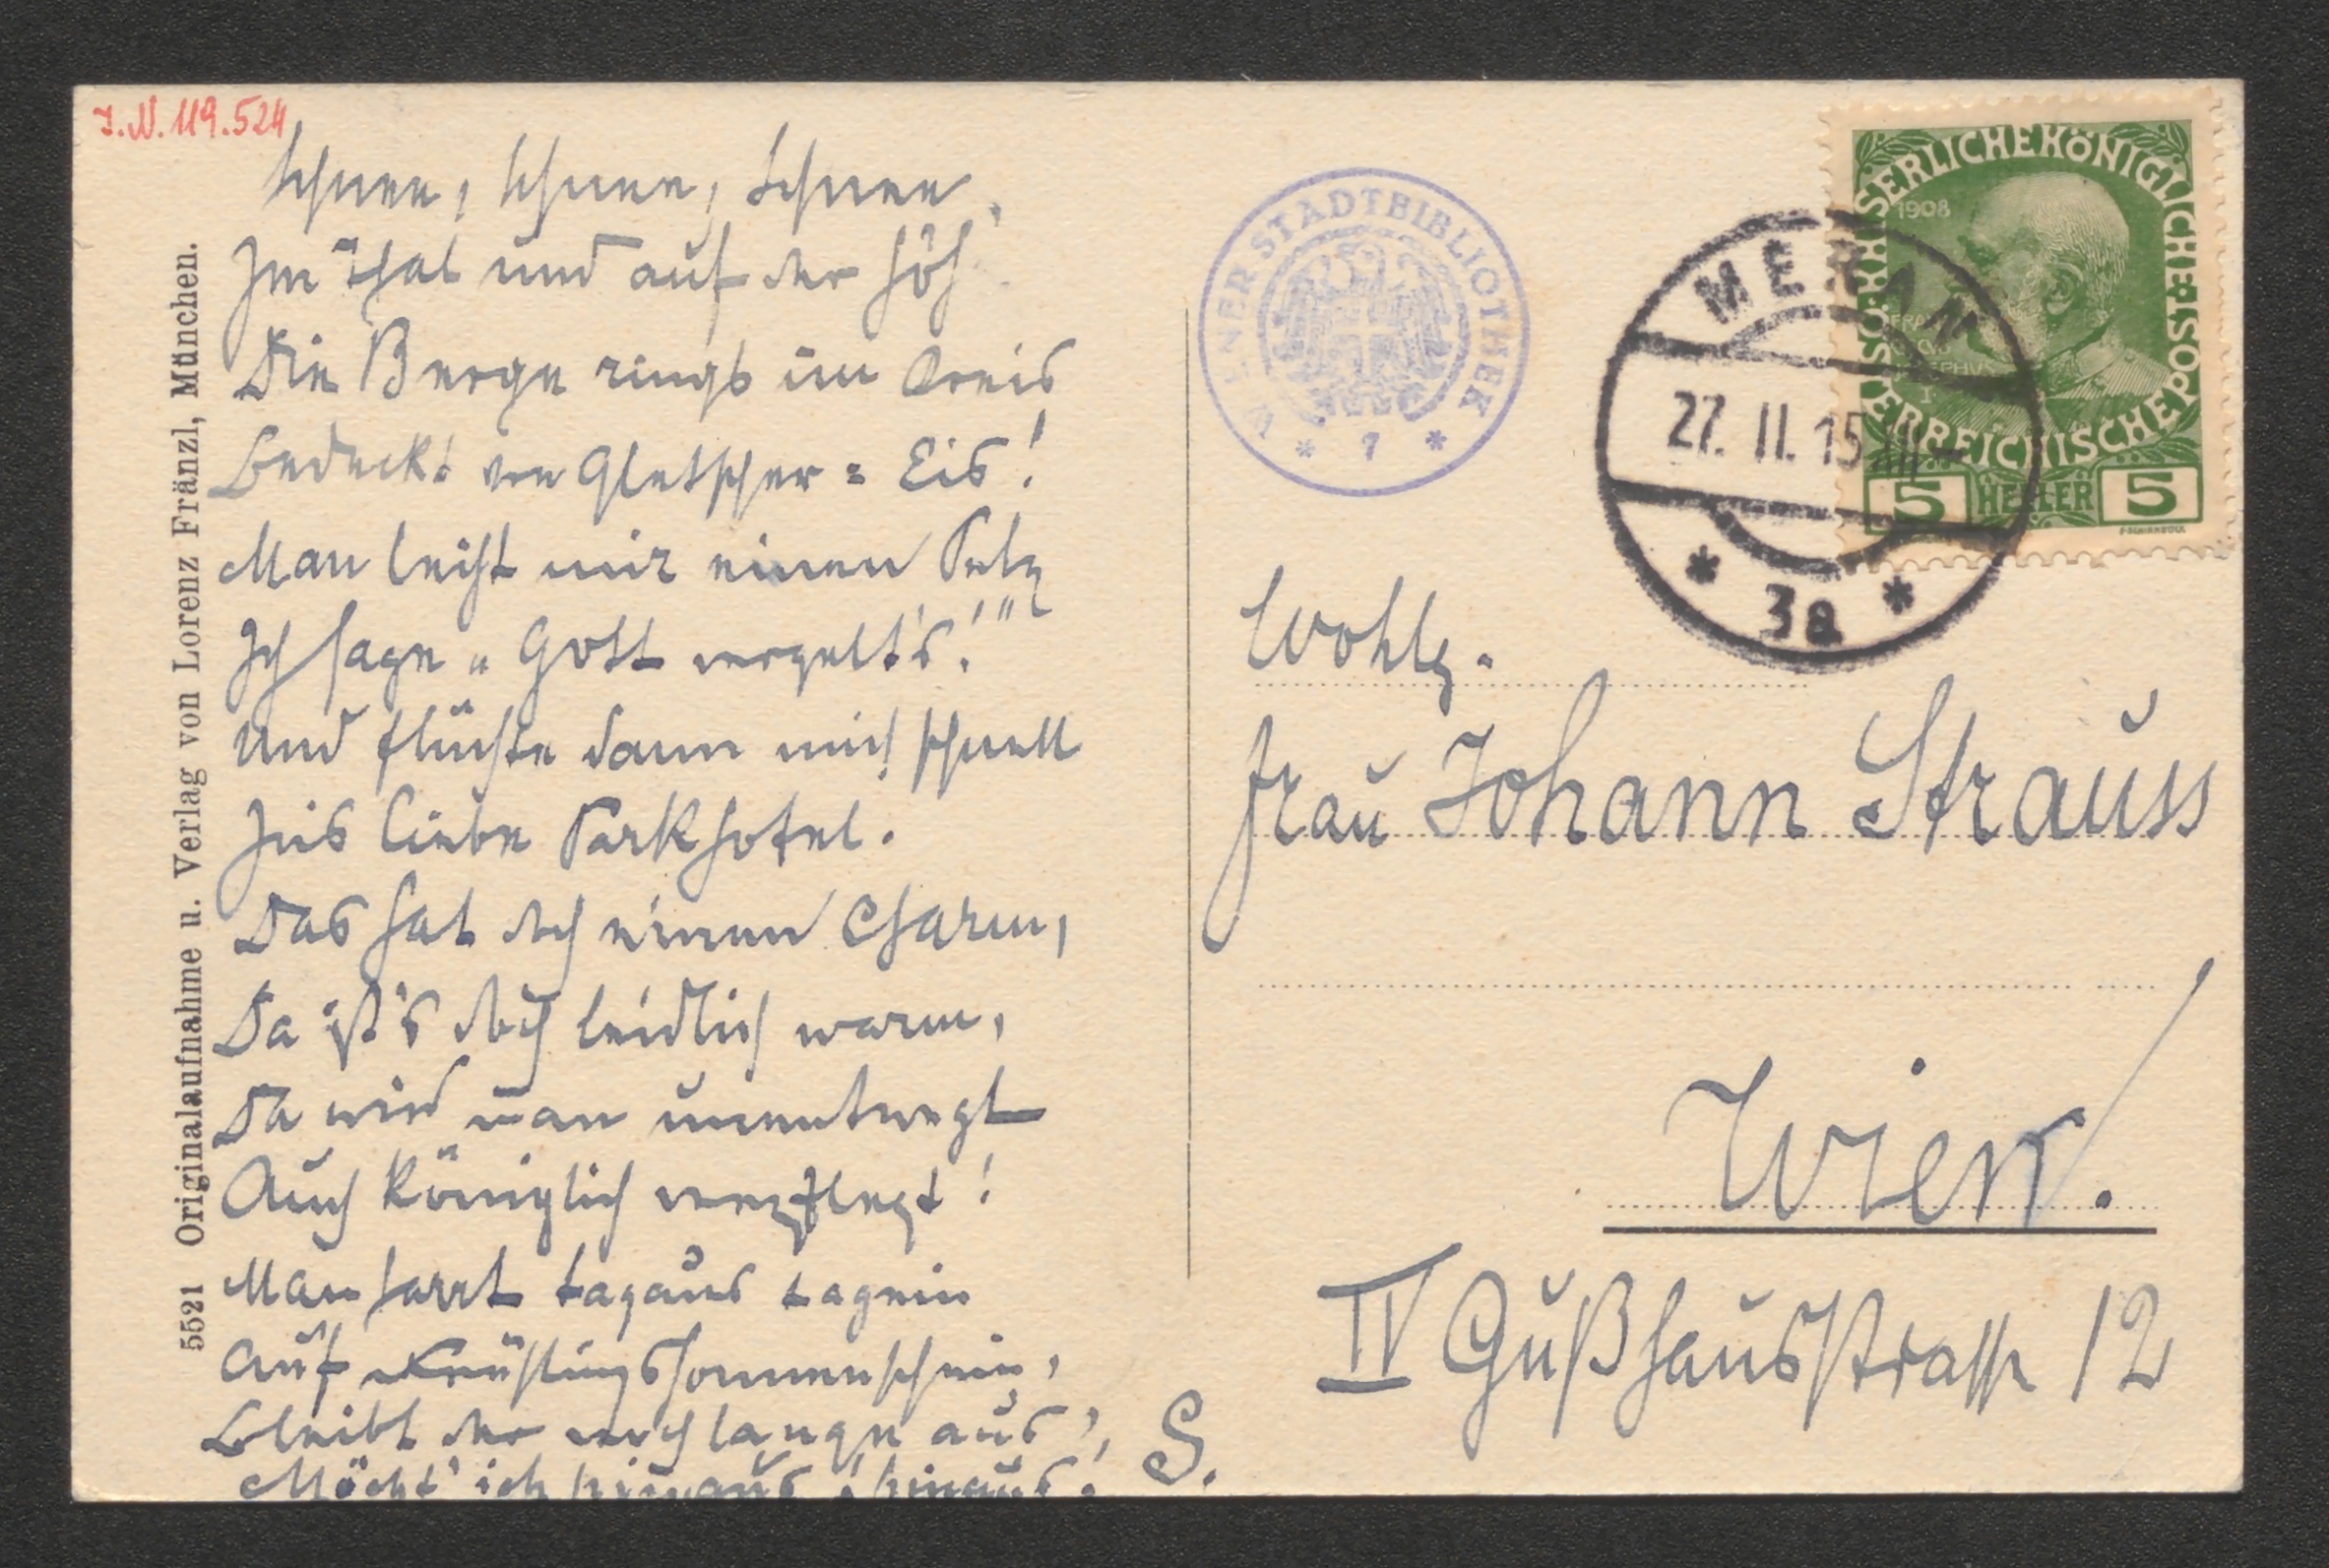 J.N. 119.524
Schnee, Schnee, Schnee
Im Thal und auf der Höh'
Die Berge rings im Kreis
Bedeckt von Gletscher = Eis!
Man leiht mir einen Pelz
Ich sage „Gott vergelt's!"
Und flüchte dann mich schnell
Ins liebe Parkhotel.
Das hat doch einen Charm,
Da ist's doch leidlich warm,
Da wird man unentwegt
Auch königlich verpflegt!
Man harrt tagaus tagein
Auf Frühlingssonnenschein,
Bleibt der noch lange aus,
Möcht' ich hinaus, hinaus!
S.
5521 Originalaufnahme u. Verlag von Lorenz Fränzl, München.
WIENER STADTBIBLIOTHEK
* 7 *
KAISERLICHE KÖNIGLICHE ÖSTERREICHISCHE POST
1908
5 HELLER 5
MERAN
27. II. 15
* 3a *
Wohlg.
Frau Johann Strauss
Wien.
IV Gußhausstrasse 12